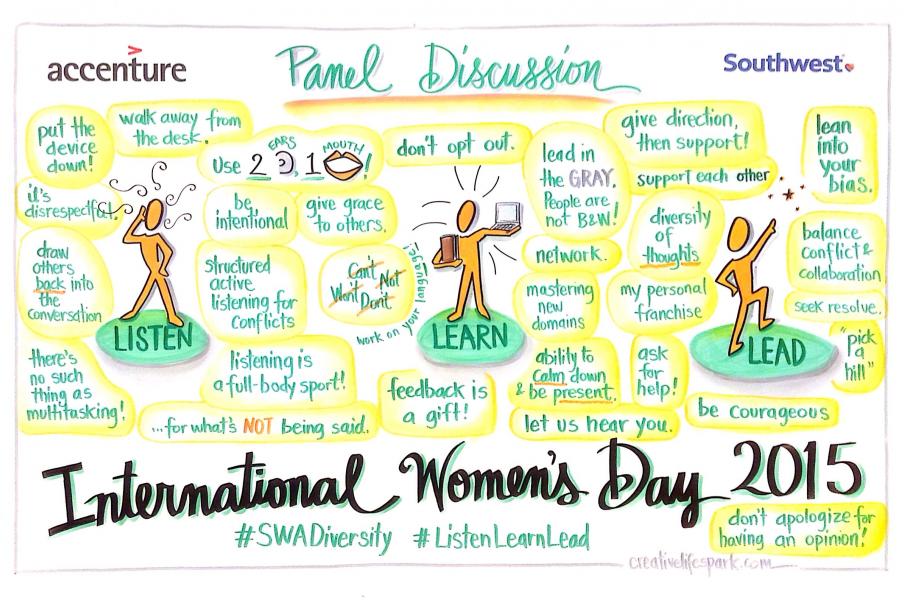 accenture
Panel Discussion
Southwest
put the
device
down!
walk away from
the desk.
Use 2 EARS, 1 MOUTH!
it's
disrespectful.
be
intentional
give grace
to others.
draw
others
back into
the
conversation
structured
active
listening for
conflicts
LISTEN
there's
no such
thing as
multitasking!
listening is
a full-body sport!
...for what's NOT being said.
don't opt out.
Can't Not
Won't Don't
work on your language!
LEARN
feedback is
a gift!
lead in
the GRAY.
People are
not B&W!
network.
mastering
new
domains
ability to
calm down
& be present.
let us hear you.
give direction,
then support!
support each other
diversity
of
thoughts
my personal
franchise
ask
for
help!
lean
into
your
bias.
balance
conflict &
collaboration
seek resolve.
"pick
a
hill"
LEAD
be courageous
International Women's Day 2015
#SWADiversity #ListenLearnLead
don't apologize for
having an opinion!
creativelifespark.com